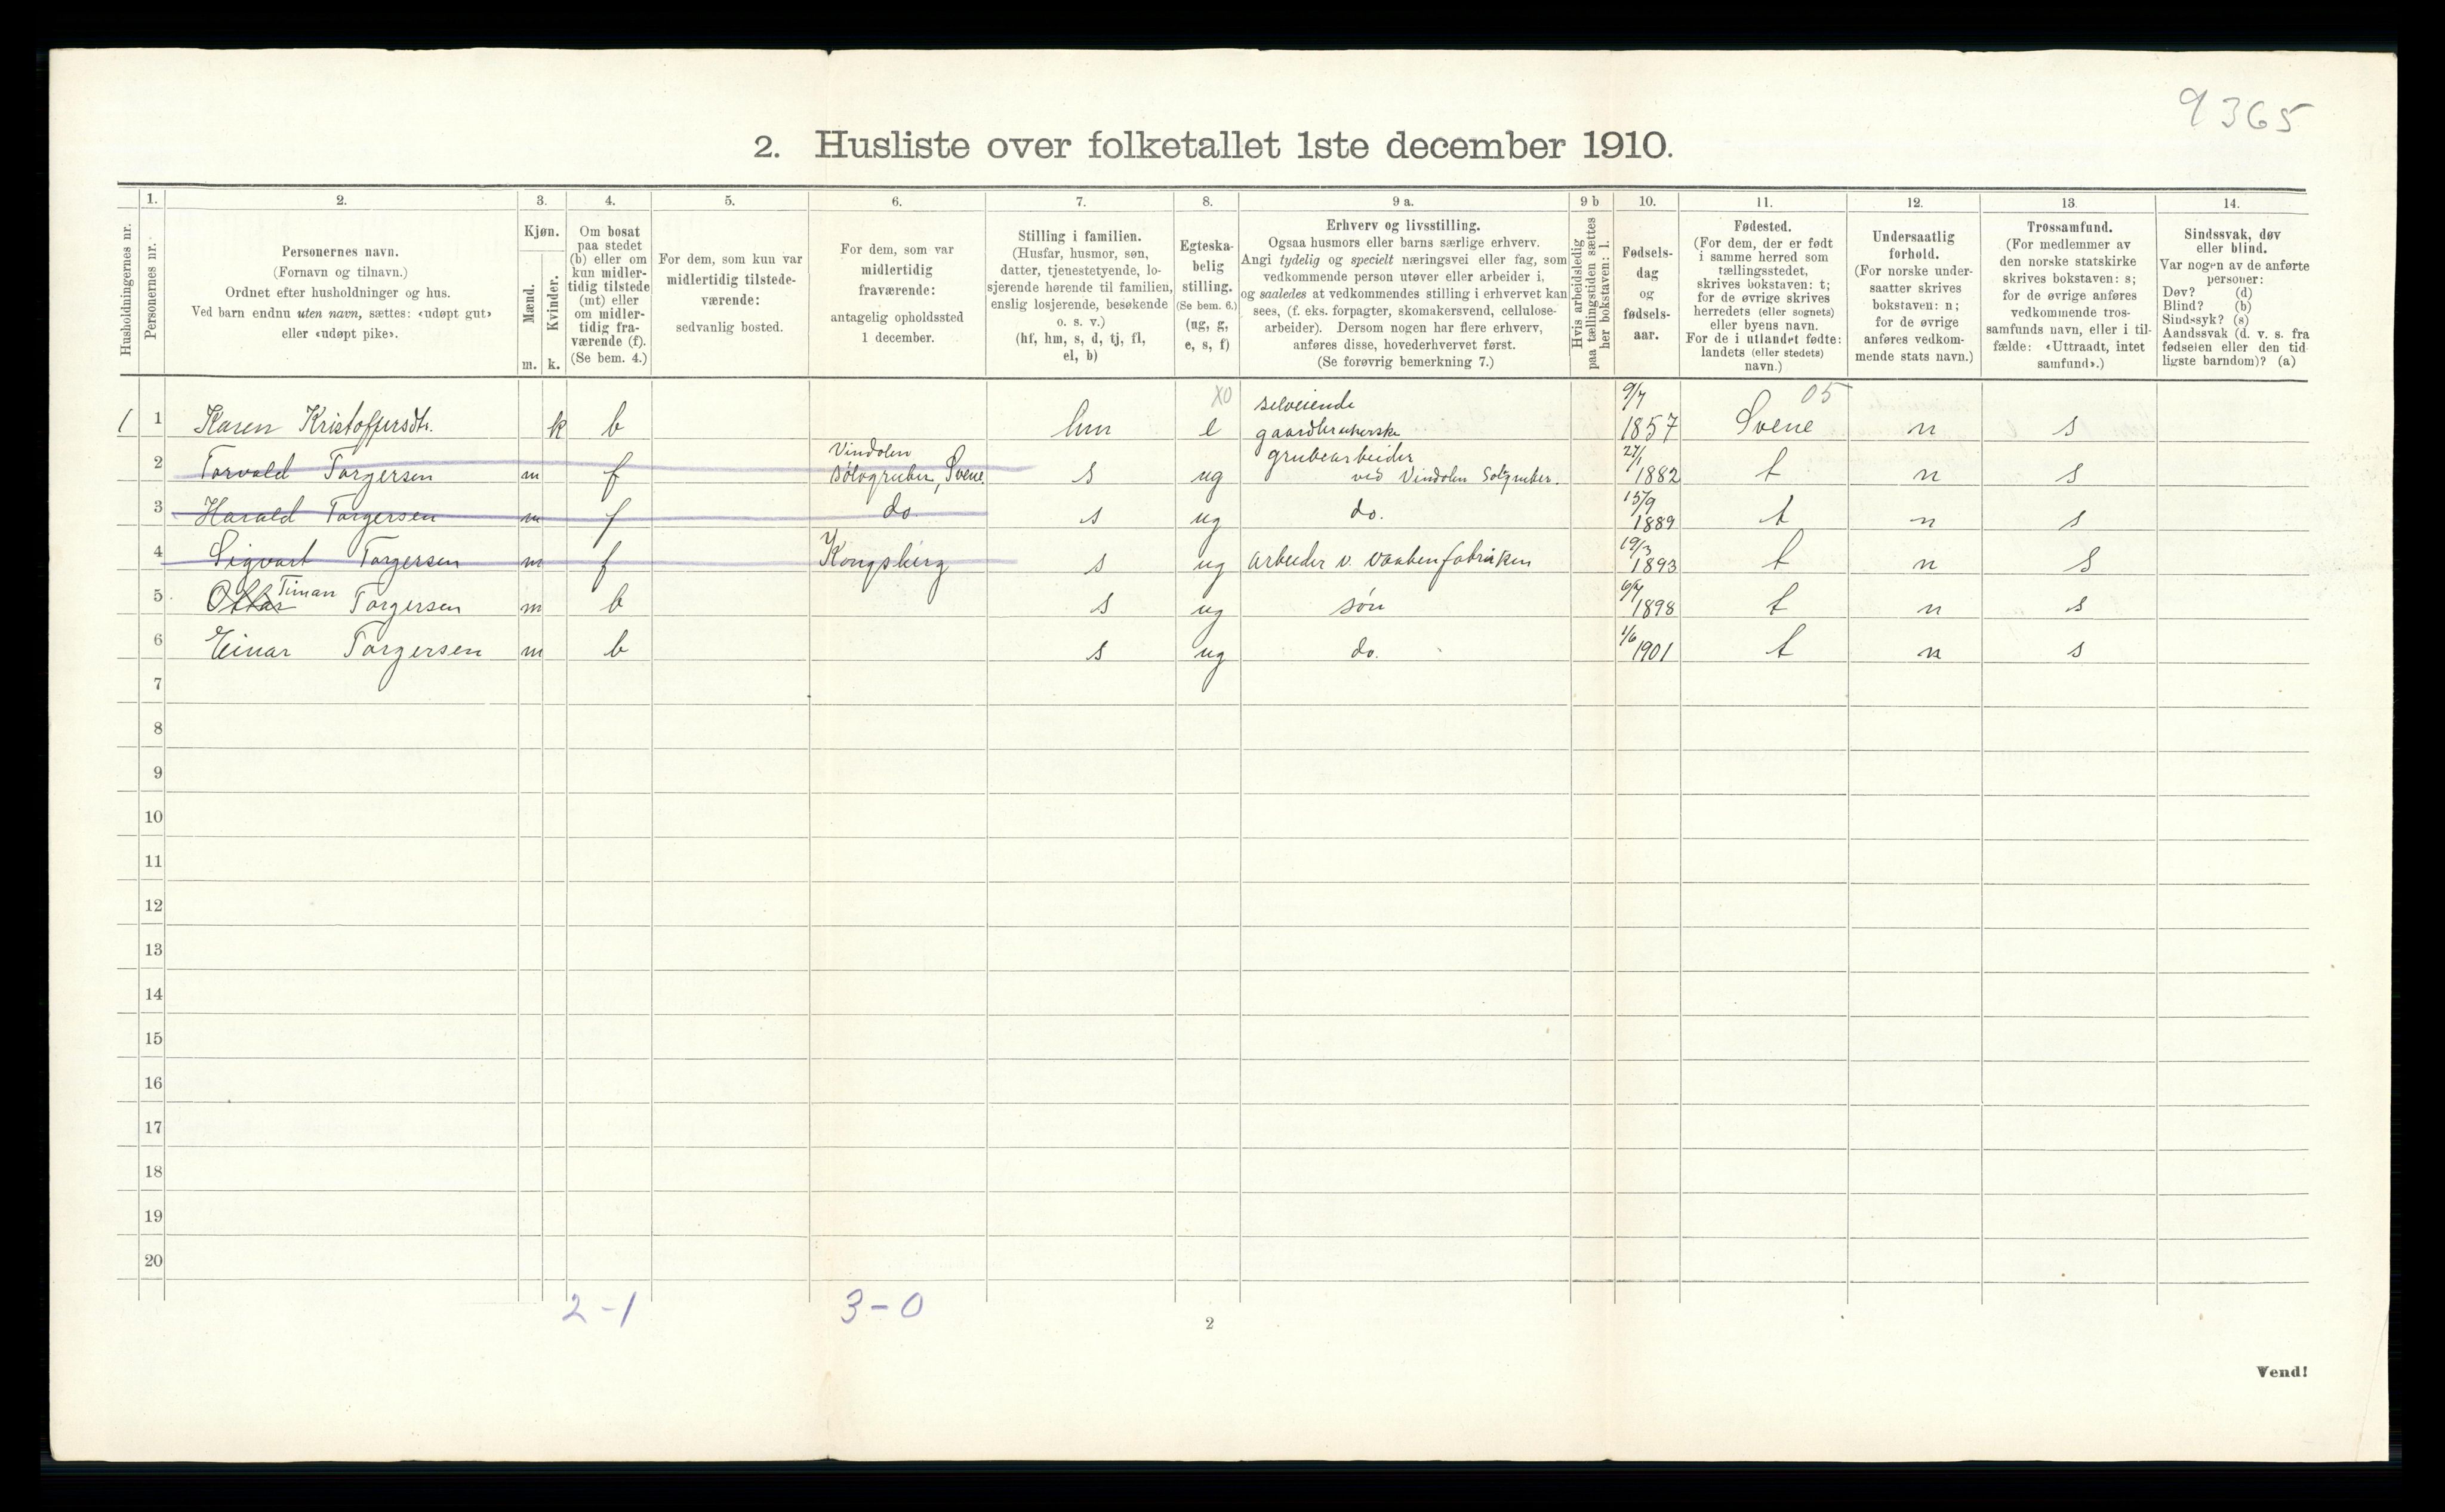 9365
2. Husliste over folketallet 1ste december 1910.
Husholdningernes nr.
1.
Personernes nr.
2.
Personernes navn.
(Fornavn og tilnavn.)
Ordnet efter husholdninger og hus.
Ved barn endnu uten navn, sættes: «udøpt gut»
eller «udøpt pike».
3.
Kjøn.
Mænd.
m.
Kvinder.
k.
4.
Om bosat
paa stedet
(b) eller om
kun midler-
tidig tilstede
(mt) eller
om midler-
tidig fra-
værende (f).
(Se bem. 4.)
5.
For dem, som kun var
midlertidig tilstede-
værende:
sedvanlig bosted.
6.
For dem, som var
midlertidig
fraværende:
antagelig opholdssted
1 december.
7.
Stilling i familien.
(Husfar, husmor, søn,
datter, tjenestetyende, lo-
sjerende hørende til familien,
enslig losjerende, besøkende
o. s. v.)
(hf, hm, s, d, tj, fl,
el, b)
8.
Egteska-
belig
stilling.
(Se bem. 6.)
(ug, g,
e, s, f)
9 a.
Erhverv og livsstilling.
Ogsaa husmors eller barns særlige erhverv.
Angi tydelig og specielt næringsvei eller fag, som
vedkommende person utøver eller arbeider i,
og saaledes at vedkommendes stilling i erhvervet kan
sees, (f. eks. forpagter, skomakersvend, cellulose-
arbeider). Dersom nogen har flere erhverv,
anføres disse, hovederhvervet først.
(Se forøvrig bemerkning 7.)
9 b
Hvis arbeidsledig
paa tællingstiden sættes
her bokstaven: l.
10.
Fødsels-
dag
og
fødsels-
aar.
11.
Fødested.
(For dem, der er født
i samme herred som
tællingsstedet,
skrives bokstaven: t;
for de øvrige skrives
herredets (eller sognets)
eller byens navn.
For de i utlandet fødte:
landets (eller stedets)
navn.)
12.
Undersaatlig
forhold.
(For norske under-
saatter skrives
bokstaven: n;
for de øvrige
anføres vedkom-
mende stats navn.)
13.
Trossamfund.
(For medlemmer av
den norske statskirke
skrives bokstaven: s;
for de øvrige anføres
vedkommende tros-
samfunds navn, eller i til-
fælde: «Uttraadt, intet
samfund».)
14.
Sindssvak, døv
eller blind.
Var nogen av de anførte
personer:
Døv? (d)
Blind? (b)
Sindssyk? (s)
Aandssvak (d. v. s. fra
fødselen eller den tid-
ligste barndom)? (a)
XO selveiende 9/7 05
1 1 Karen Kristoffersdtr. k b hm e gaardbrukerske 1857 Svene n s
Vindolen grubearbeider 27/1
2 Torvald Torgersen m f Sølvgruber, Svene. s ug ved Vindolen Sølvgruber. 1882 t n s
15/9
3 Harald Torgersen m f do. s ug do. 1889 t n s
19/3
4 Sigvart Torgersen m f Kongsberg s ug arbeider v. Vaabenfabrikken 1893 t n s
Timan
5 Torgersen m b s ug søn 1898 t n s
6 Einar Torgersen m b s ug do. 1/6 1901 t n s
7
8
9
10
11
12
13
14
15
16
17
18
19
20
2-1 3-0
2
Vend!